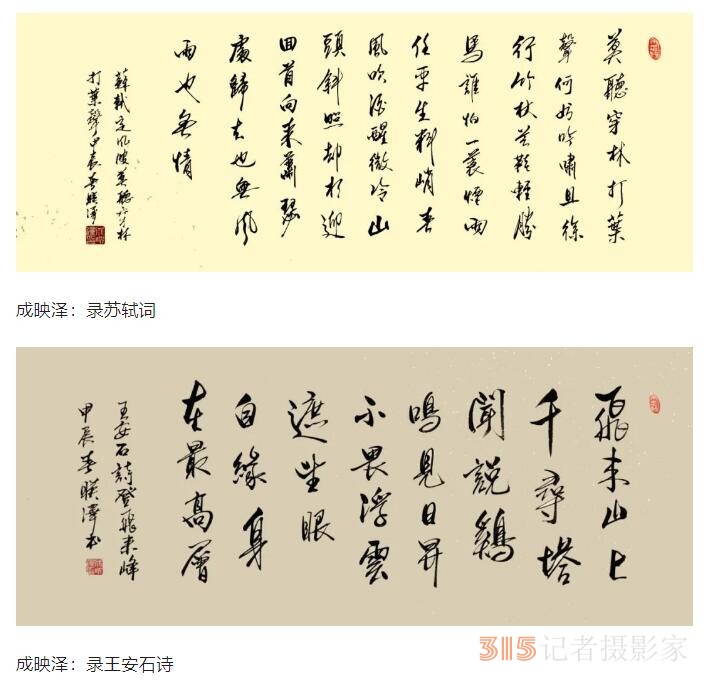 莫聽穿林打葉
聲何妨吟嘯且徐
行竹杖芒鞋輕勝
馬誰怕一蓑煙雨
任平生料峭春
風吹酒醒微冷山
頭斜照却相迎
回首向來蕭瑟
處歸去也無風
雨也無情
蘇軾定風波莫聽穿林
打葉聲甲辰春映澤
成映泽：录苏轼词
飛來山上
千尋塔
聞說鷄
鳴見日昇
不畏浮雲
遮望眼
自緣身
在最高層
王安石詩登飛來峰
甲辰春映澤书
315记者摄影家
成映泽：录王安石诗